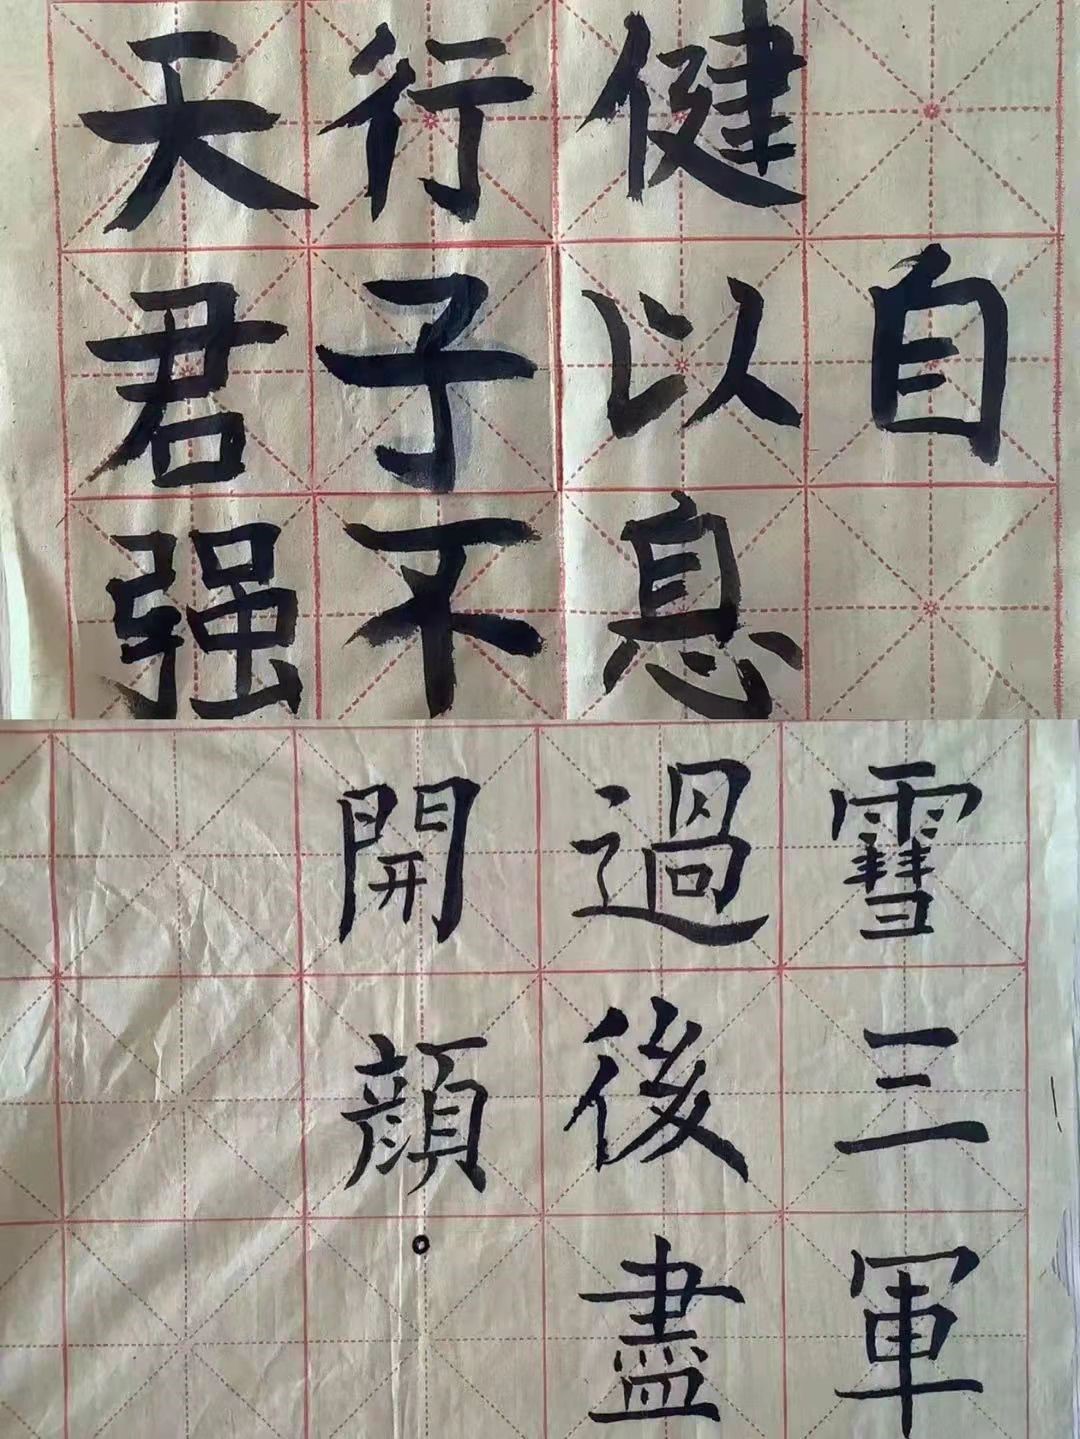 天行健
君子以自
强不息
雪三軍
過後盡
開顔。